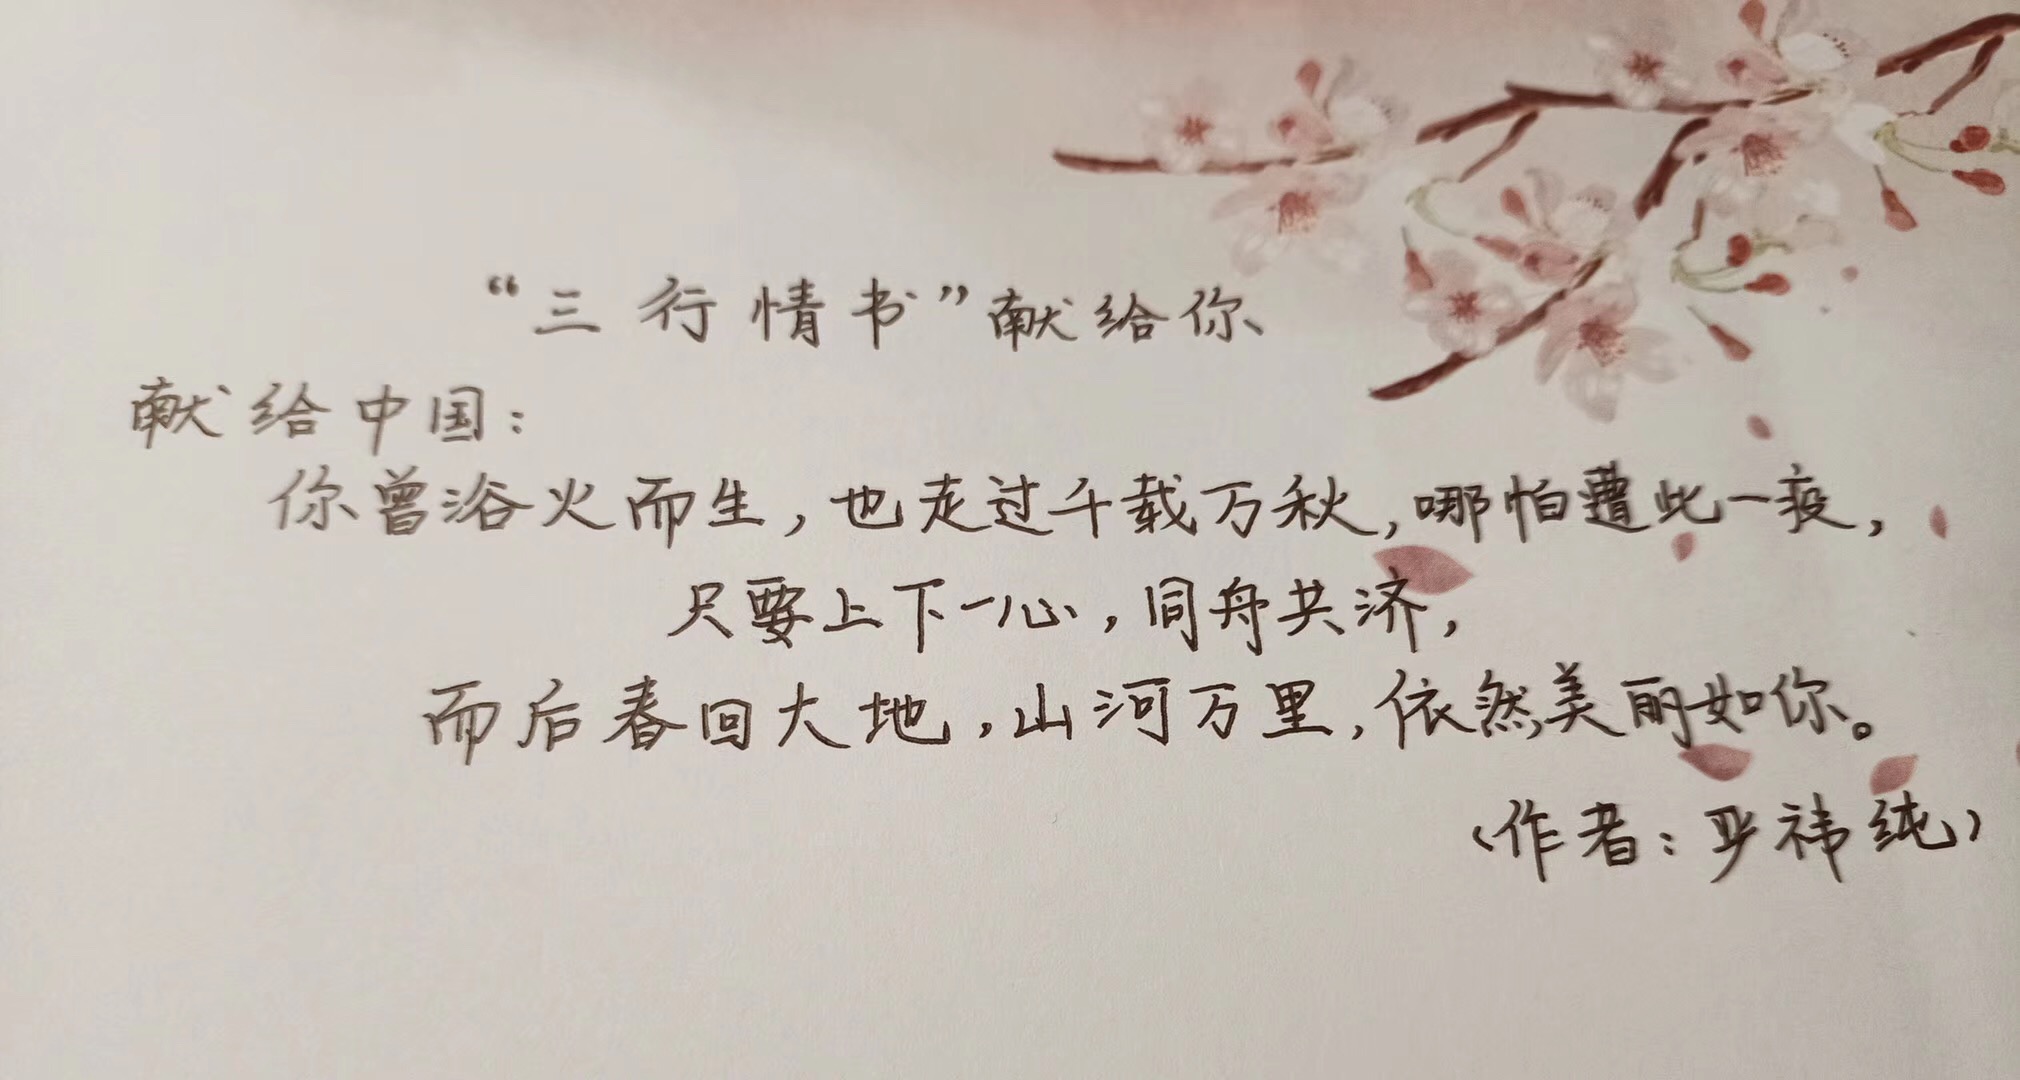 “三行情书”献给你
献给中国：
你曾浴火而生，也走过千载万秋，哪怕遭此一疫，
只要上下一心，同舟共济，
而后春回大地，山河万里，依然美丽如你。
（作者：严祎纯）